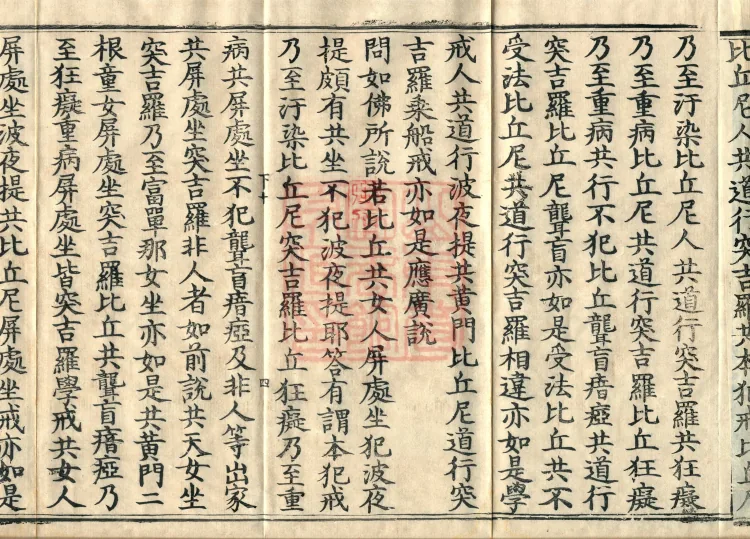 比丘尼人共道行突吉羅共本犯戒比丘尼
乃至汙染比丘尼人共道行突吉羅共狂癡
乃至重病比丘尼共道行突吉羅比丘狂癡
乃至重病共行不犯比丘聾盲瘖瘂共道行
突吉羅比丘尼聾盲亦如是受法比丘共不
受法比丘尼共道行突吉羅相違亦如是學
戒人共道行波夜提共黃門比丘尼道行突
吉羅乘船戒亦如是應廣說
問如佛所說若比丘共女人屏處坐犯波夜
提頗有共坐不犯波夜提耶答有謂本犯戒
乃至汙染比丘尼突吉羅比丘狂癡乃至重
下十 四
病共屏處坐不犯聾盲瘖瘂及非人等出家
共屏處坐突吉羅非人者如前說共天女坐
突吉羅乃至富單那女坐亦如是共黃門二
根童女屏處坐突吉羅比丘共聾盲瘖瘂乃
至狂癡重病屏處坐皆突吉羅學戒共女人
屏處坐波夜提共比丘尼屏處坐戒亦如是